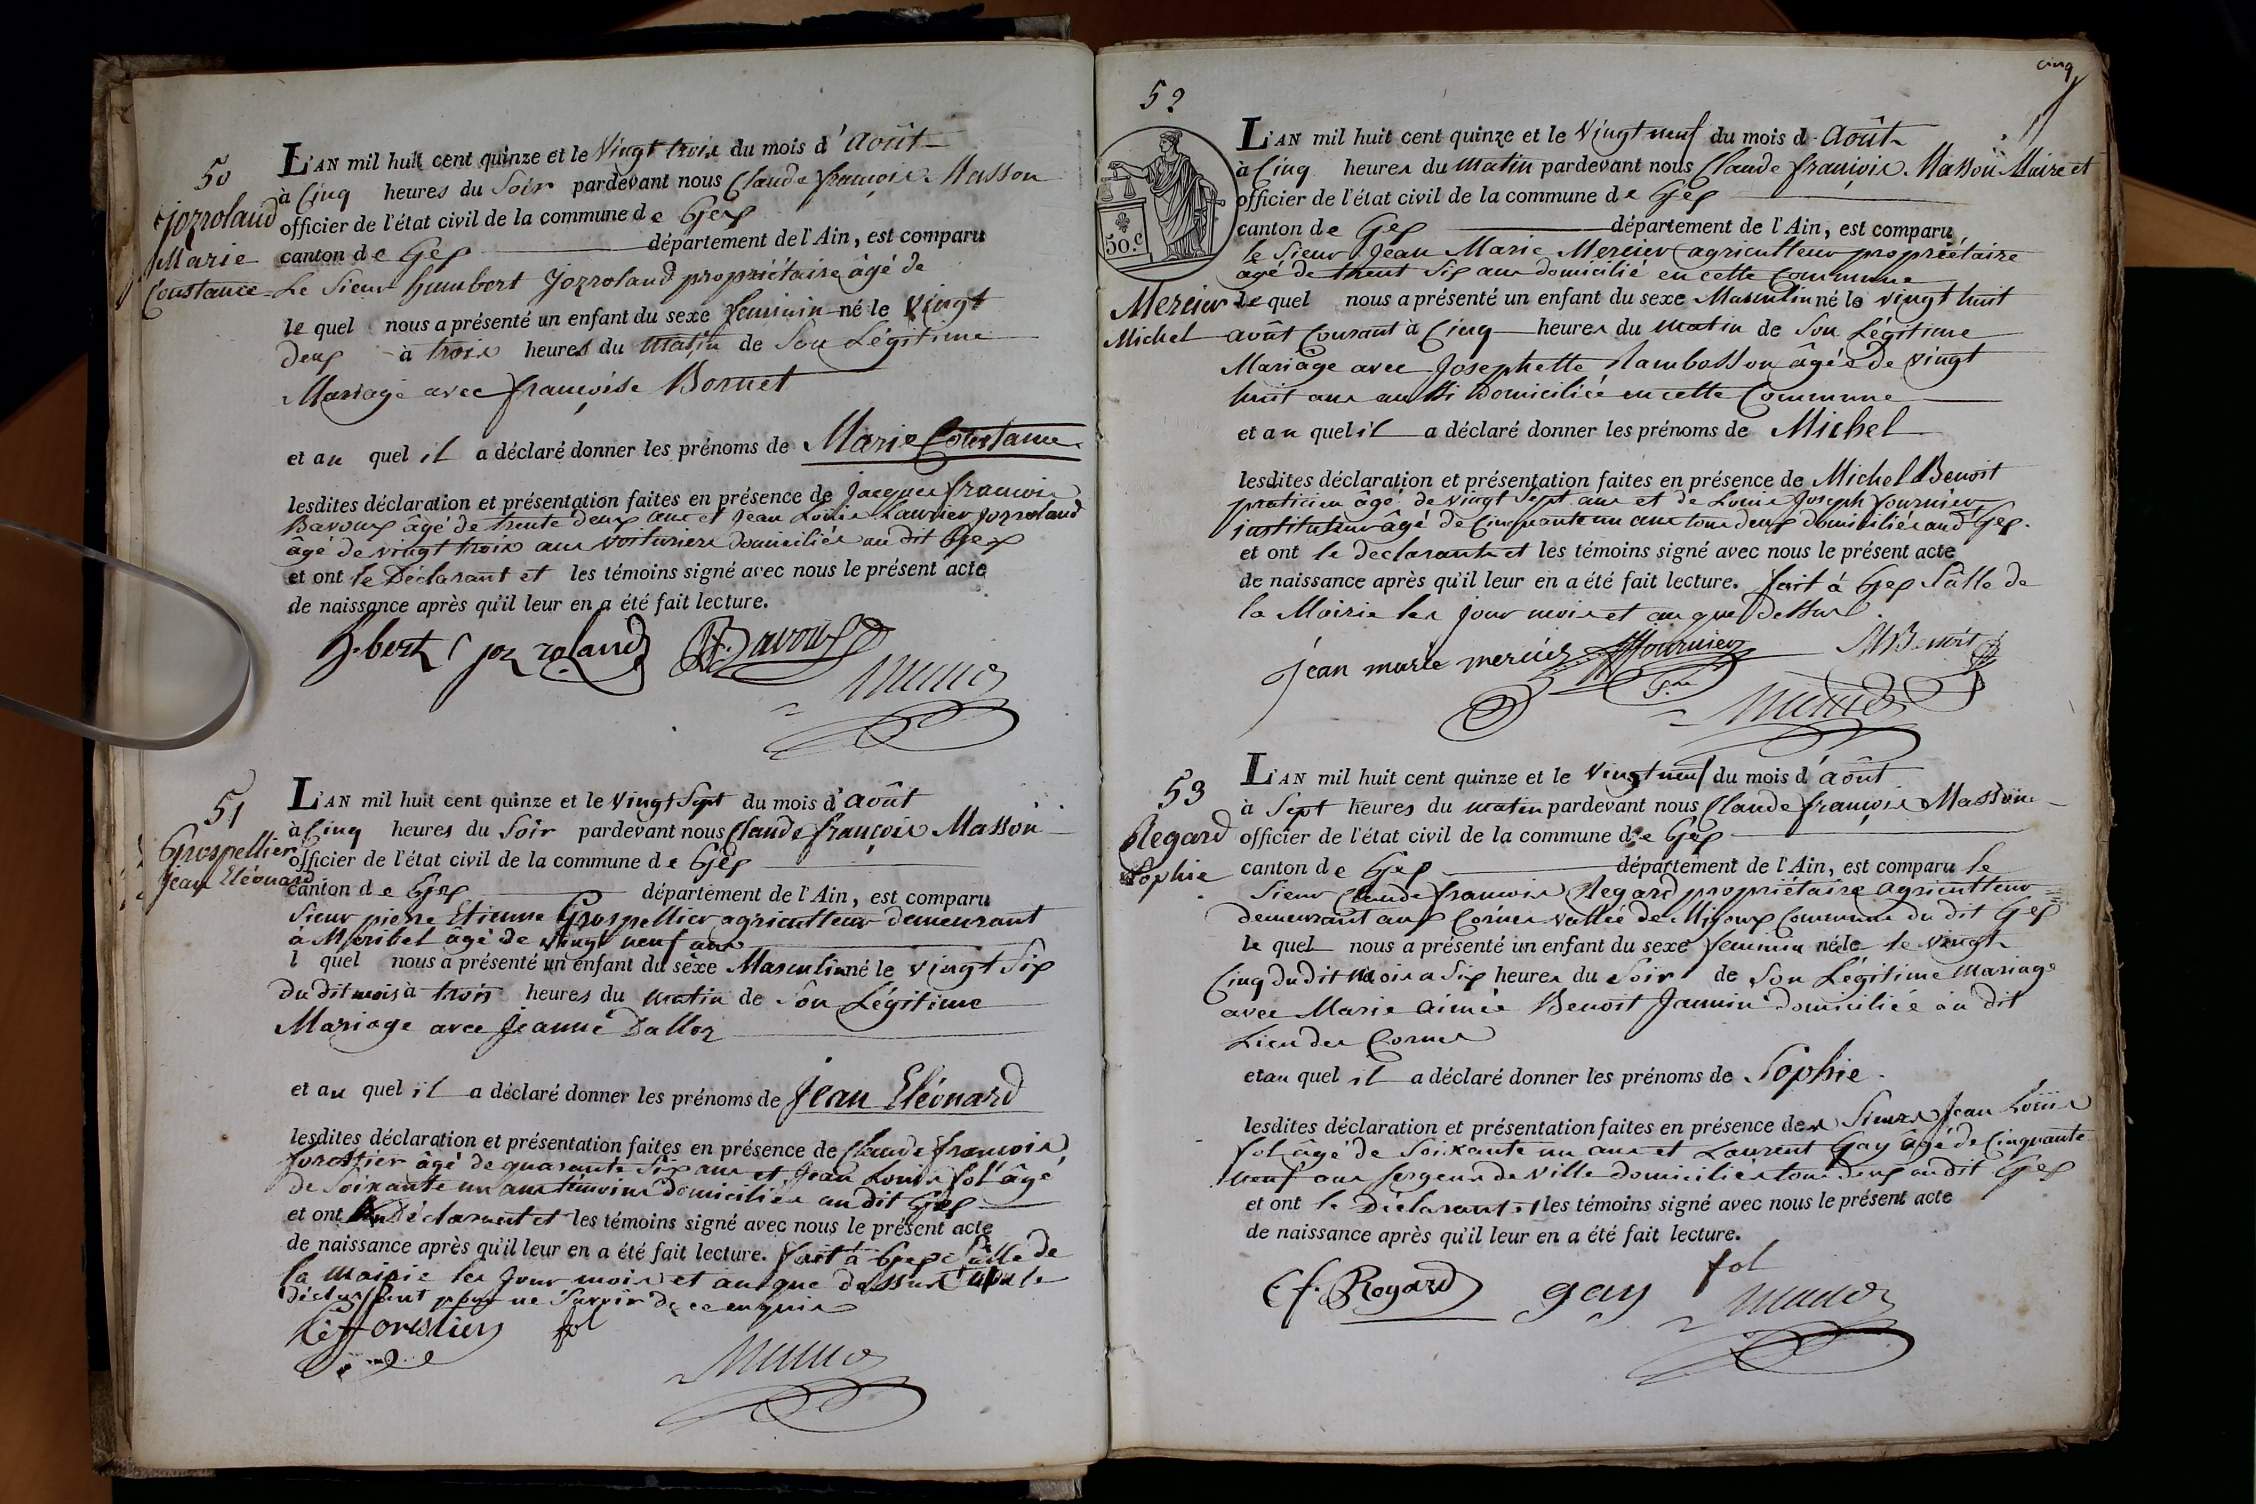 50
Jozroland
Marie
Constance
L'AN mil huit cent quinze et le Vingt trois du mois d'Août
à Cinq heures du Soir pardevant nous Claude françois Masson
officier de l'état civil de la commune de Gex
canton de Gex département de l'Ain, est comparu
Le Sieur humbert Jozroland propriétaire âgé de
le quel nous a présenté un enfant du sexe feminin né le Vingt
deux à trois heures du matin de Son Légitime
Mariage avec françoise Bornet
et au quel il a déclaré donner les prénoms de Marie Constance
lesdites déclaration et présentation faites en présence de Jacques françois
Bavoux âgé de trente deux ans et Jean Louis Laurier Jozroland
âgé de vingt trois ans voituriers domiciliés au dit Gex
et ont le Déclarant et les témoins signé avec nous le présent acte
de naissance après qu'il leur en a été fait lecture.
h.bert jozroland Bavoux
51
Grospellier
Jean Eléonard
L'AN mil huit cent quinze et le Vingt Sept du mois d'août
à Cinq heures du Soir pardevant nous Claude françois Masson
officier de l'état civil de la commune de Gex
canton de Gex département de l'Ain, est comparu
Sieur pierre Etienne Grospellier agriculteur demeurant
à Maribel âgé de vingt neuf ans
l quel nous a présenté un enfant du sexe Masculin né le vingt Six
du dit mois à trois heures du matin de Son Légitime
Mariage avec Jeanne Dalloz
et au quel il a déclaré donner les prénoms de Jean Eléonard
lesdites déclaration et présentation faites en présence de Claude françois
forestier âgé de quarante Six ans et Jean Louis fol âgé
de Soixante un ans témoins domiciliés au dit Gex
et ont Déclarant et les témoins signé avec nous le présent acte
de naissance après qu'il leur en a été fait lecture. fait à Gex Salle de
la Mairie les Jour mois et an que dessus le
déclarant pour ne Savoir de ce enquis
forestier fol
cinq
52
50.c
Mercier
Michel
L'AN mil huit cent quinze et le Vingt neuf du mois d'Août
à Cinq heures du Matin pardevant nous Claude françois Masson Maire et
officier de l'état civil de la commune de Gex
canton de Gex département de l'Ain, est comparu
le Sieur Jean Marie Mercier agriculteur propriétaire
âgé de trent Six ans domicilié en cette Commune
le quel nous a présenté un enfant du sexe Masculin né le vingt huit
août Courant à Cinq heures du matin de Son Légitime
Mariage avec Josephette Nambosson âgée de vingt
huit ans aussi Domiciliée en cette Commune
et au quel il a déclaré donner les prénoms de Michel
lesdites déclaration et présentation faites en présence de Michel Benoit
praticien âgé de vingt Sept ans et de Louis Joseph fournier
instituteur âgé de Cinquante un ans tous deux domiciliés aud Gex.
et ont le déclarant et les témoins signé avec nous le présent acte
de naissance après qu'il leur en a été fait lecture. fait à Gex Salle de
la Mairie les jour mois et an que Dessus
jean marie mercier fournier M Benoit
53
Regard
Sophie
L'AN mil huit cent quinze et le Vingt neuf du mois d'août
à Sept heures du matin pardevant nous Claude françois Masson
officier de l'état civil de la commune de Gex
canton de Gex département de l'Ain, est comparu le
Sieur Claude françois Regard propriétaire agriculteur
demeurant aux Cornes vallée de Mijoux Commune du dit Gex
le quel nous a présenté un enfant du sexe feminin née le le vingt
Cinq du dit Mois a Six heures du Soir de Son Légitime Mariage
avec Marie aimée Benoit Jannin domiciliée au dit
Lieu des Cornes
et au quel il a déclaré donner les prénoms de Sophie.
lesdites déclaration et présentation faites en présence des Sieurs Jean Louis
fol âgé de Soixante un ans et Laurent Gay âgé de Cinquante
neuf ans Sergens de ville domiciliés tous deux au dit Gex
et ont le Déclarant et les témoins signé avec nous le présent acte
de naissance après qu'il leur en a été fait lecture.
C f. Regard gay fol